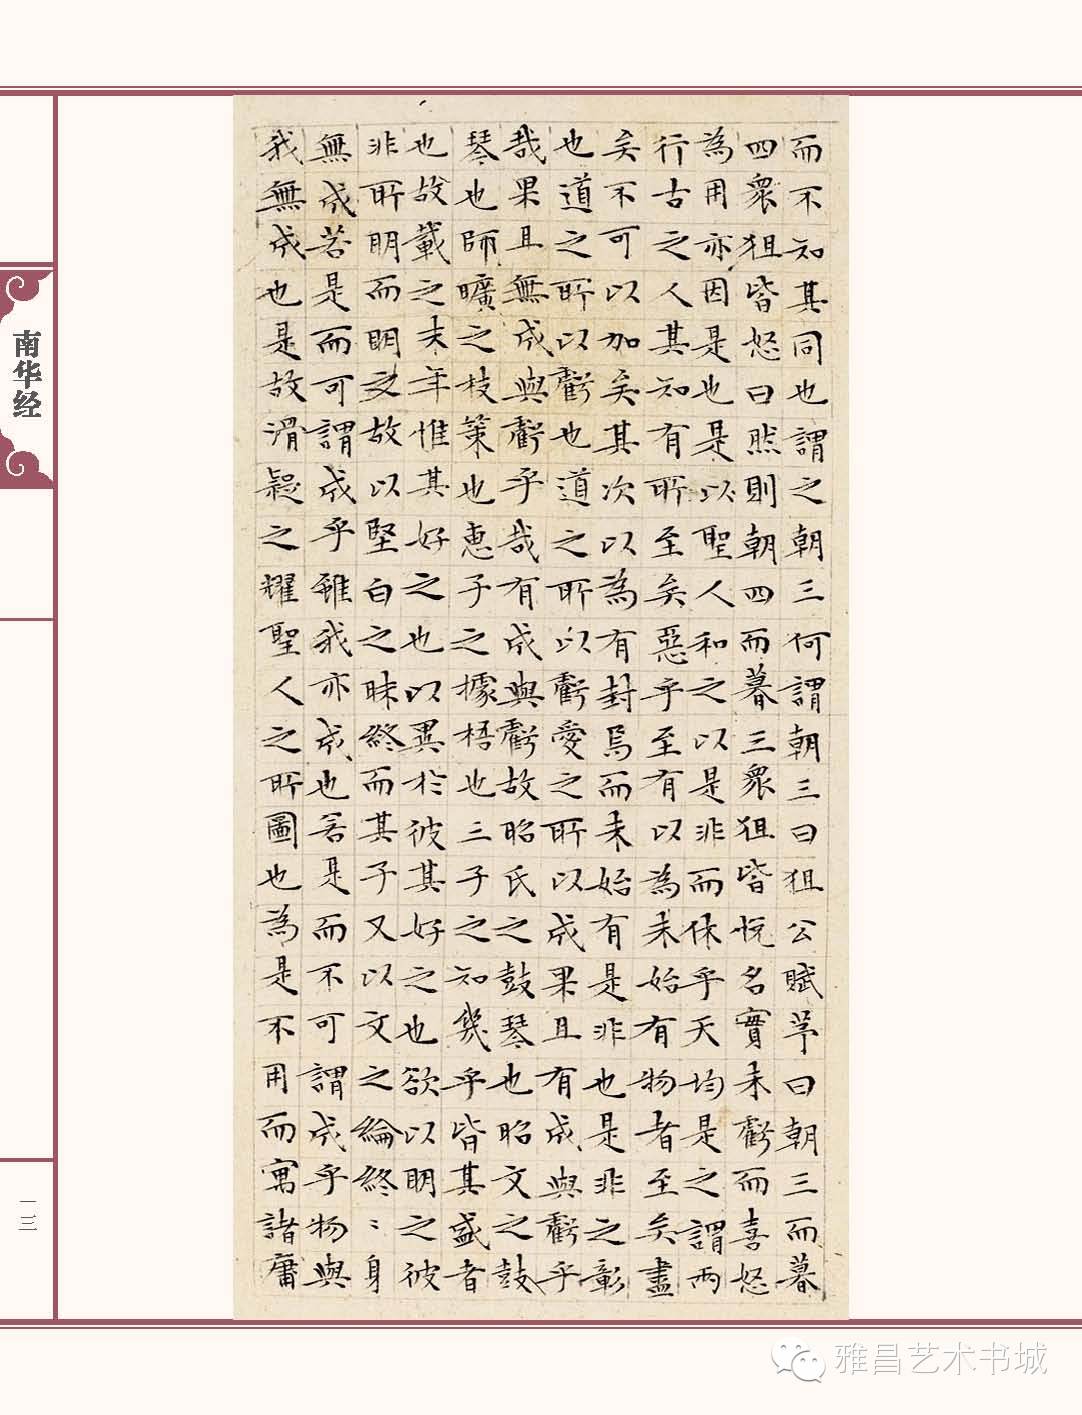 而不知其同也謂之朝三何謂朝三曰狙公賦芧曰朝三而暮
四衆狙皆怒曰然則朝四而暮三衆狙皆悅名實未虧而喜怒
為用亦因是也是以聖人和之以是非而休乎天均是之謂兩
行古之人其知有所至矣惡乎至有以為未始有物者至矣盡
矣不可以加矣其次以為有封焉而未始有是非也是非之彰
也道之所以虧也道之所以虧愛之所以成果且有成與虧乎
哉果且無成與虧乎哉有成與虧故昭氏之鼓琴也昭文之鼓
琴也師曠之枝策也惠子之據梧也三子之知幾乎皆其盛者
也故載之末年惟其好之也以異於彼其好之也欲以明之彼
非所明而明之故以堅白之昧終而其子又以文之綸終〻身
無成若是而可謂成乎雖我亦成也若是而不可謂成乎物與
我無成也是故滑疑之耀聖人之所圖也為是不用而寓諸庸
南华经
一三
雅昌艺术书城